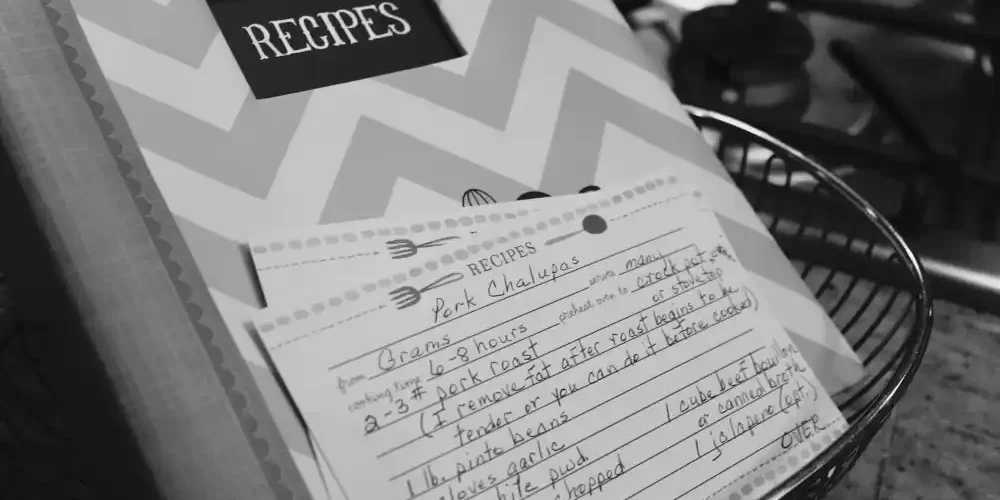 RECIPES
RECIPES
Pork Chalupas
from Grams serves many
cooking time 6-8 hours preheat oven to crock pot
or stovetop
2-3# pork roast
(I remove fat after roast begins to be
tender or you can do it before cooked)
1 lb. pinto beans 1 cube beef bouillon
cloves garlic or canned broth
pwd. 1 jalapeno (opt.)
chopped OVER